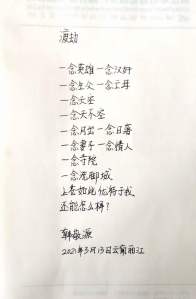 渡劫
一念英雄 一念汉奸
一念生父 一念亡母
一念天坐
一念天不坐
一念月出 一念日落
一念妻子 一念情人
一念寺院
一念洗脚城
上苍如此优待于我
还能怎么样?
韩敬源
2021年3月13日云南丽江